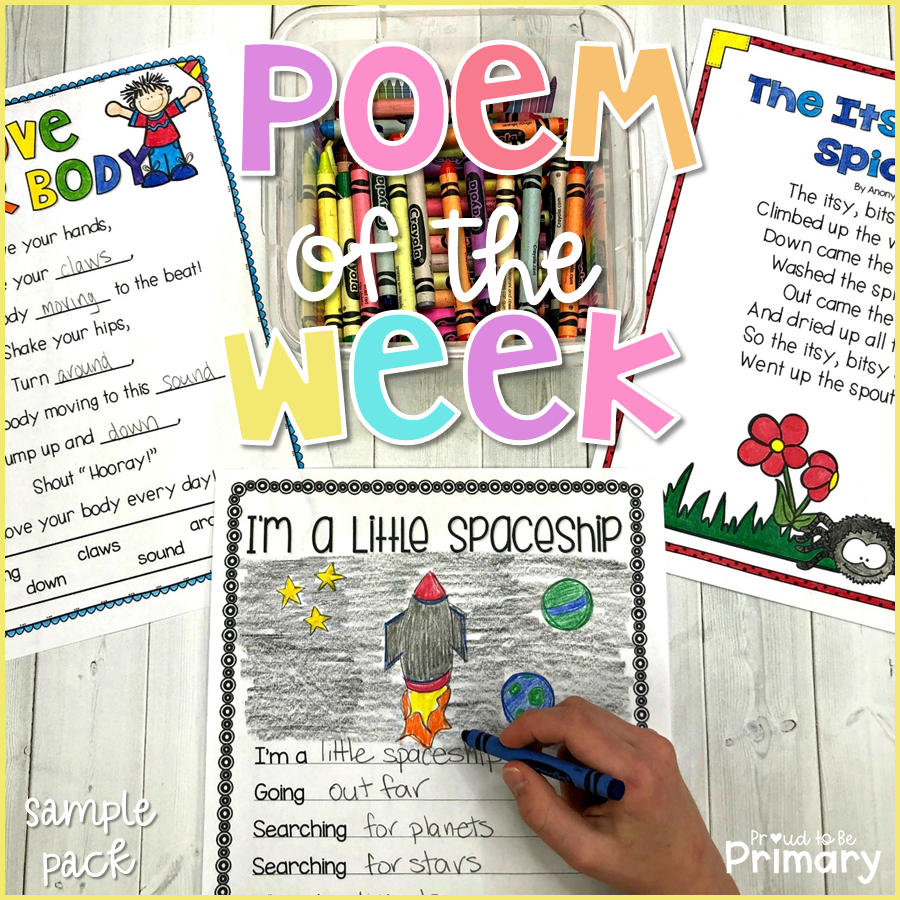 POEM
of the
WEEK
BODY
your hands,
your claws,
moving to the beat!
Shake your hips,
Turn around,
body moving to this sound
ump up and down,
Shout "Hooray!"
ove your body every day!
claws
down
sound
The Its
Spi
By Anony
The itsy, bits
Climbed up the w
Down came the
Washed the spi
Out came the
And dried up all
So the itsy, bitsy
Went up the spout
I'm a Little Spaceship
I'm a little spaceship
Going out far
Searching for planets
Searching for stars
Crayola
Crayola
Crayola
sample
pack
Proud to Be
Primary